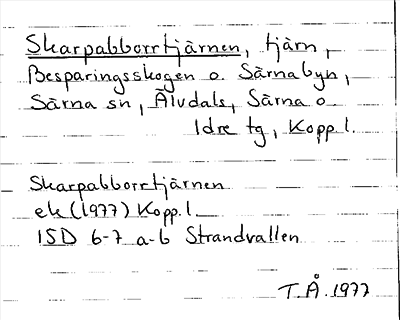 Skarpabborrtjärnen, tjärn,
Besparingsskogen o. Särnabyn,
Särna sn, Älvdals, Särna o.
Idre tg, Kopp l.
Skarpabborrtjärnen
ek (1977) Kopp. l
15D 6-7 a-b Strandvallen
T.Å. 1977